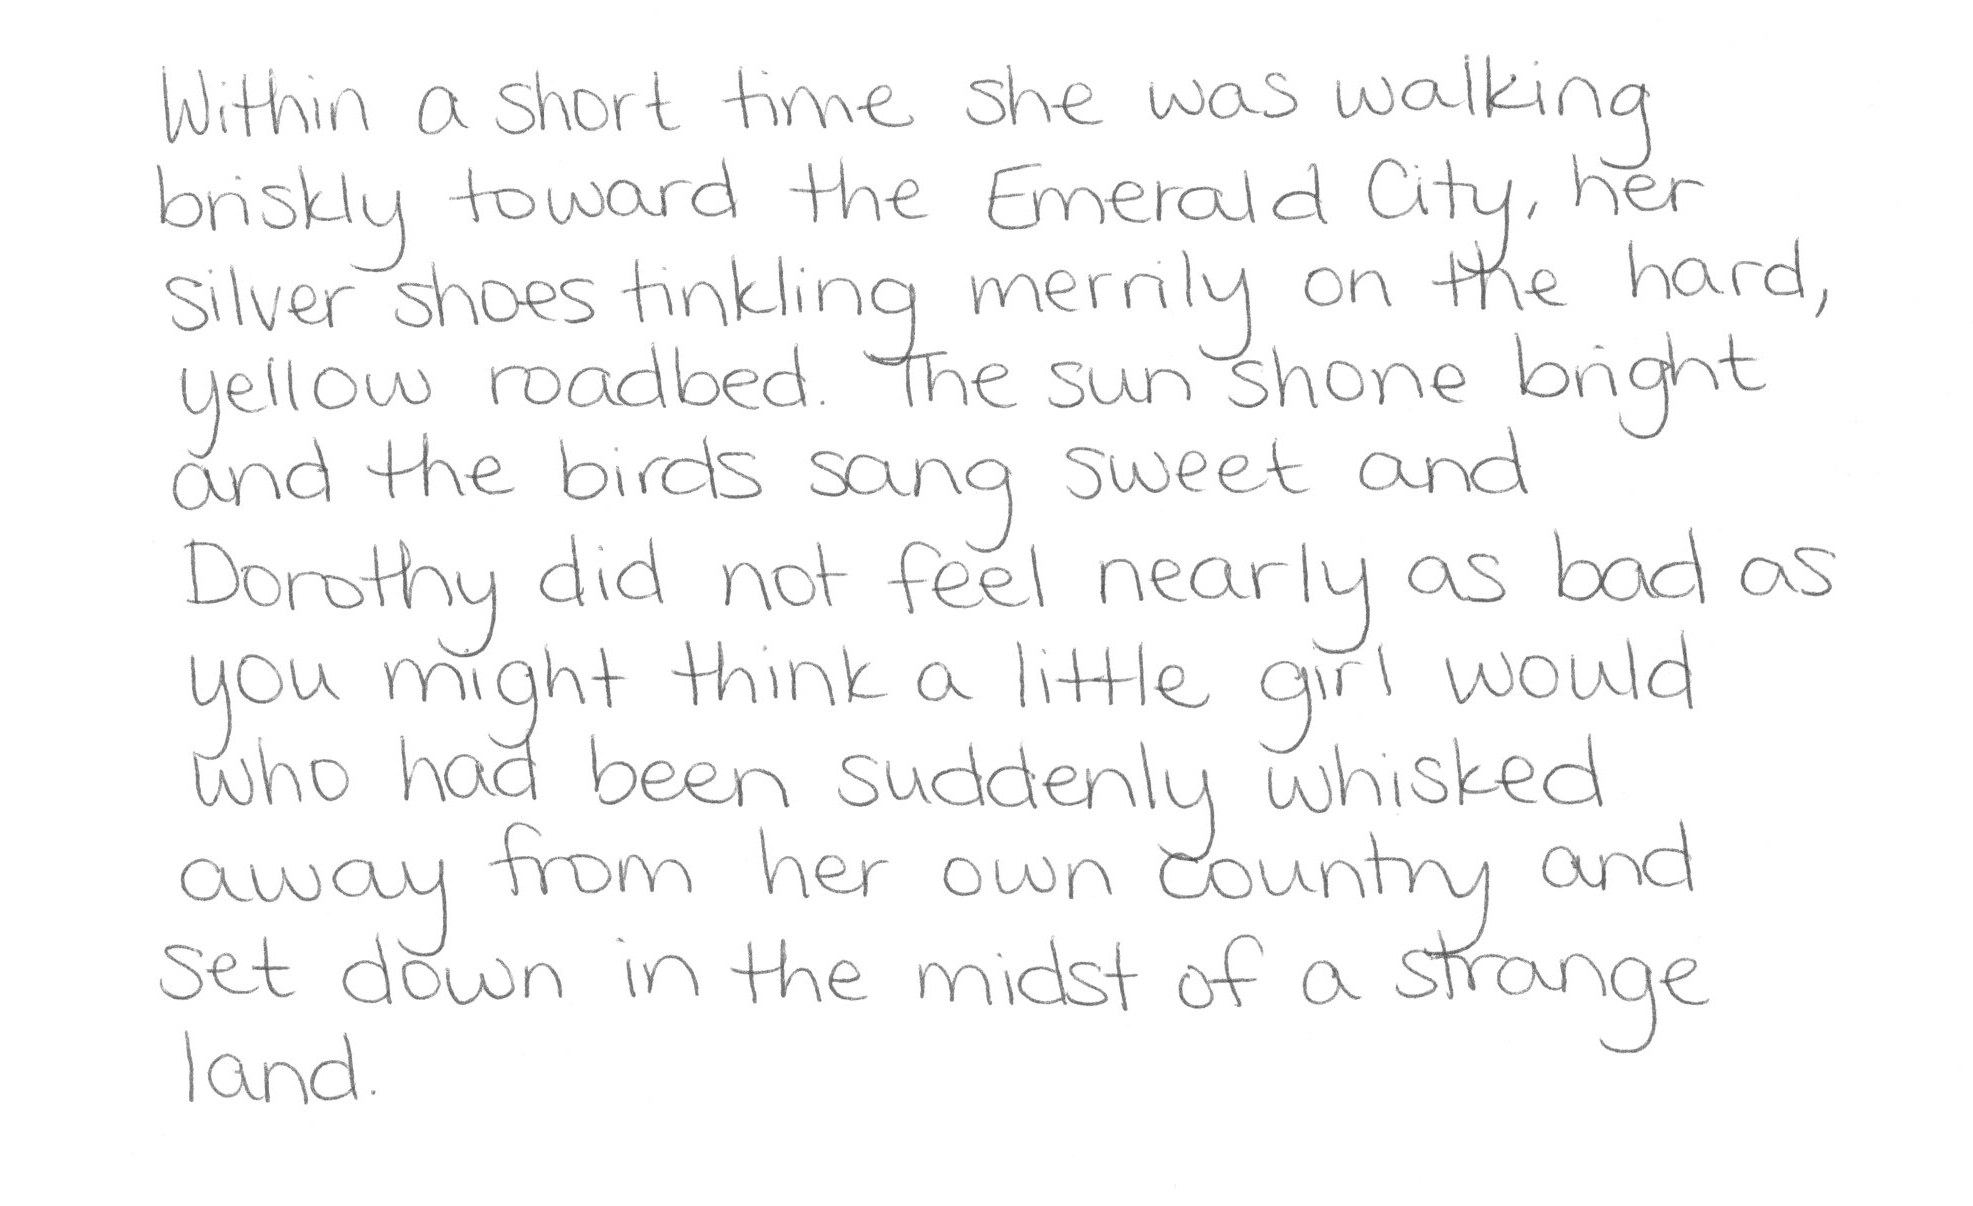 Within a short time she was walking
briskly toward the Emerald City, her
silver shoes tinkling merrily on the hard,
yellow roadbed. The sun shone bright
and the birds sang sweet and
Dorothy did not feel nearly as bad as
you might think a little girl would
who had been suddenly whisked
away from her own country and
set down in the midst of a strange
land.